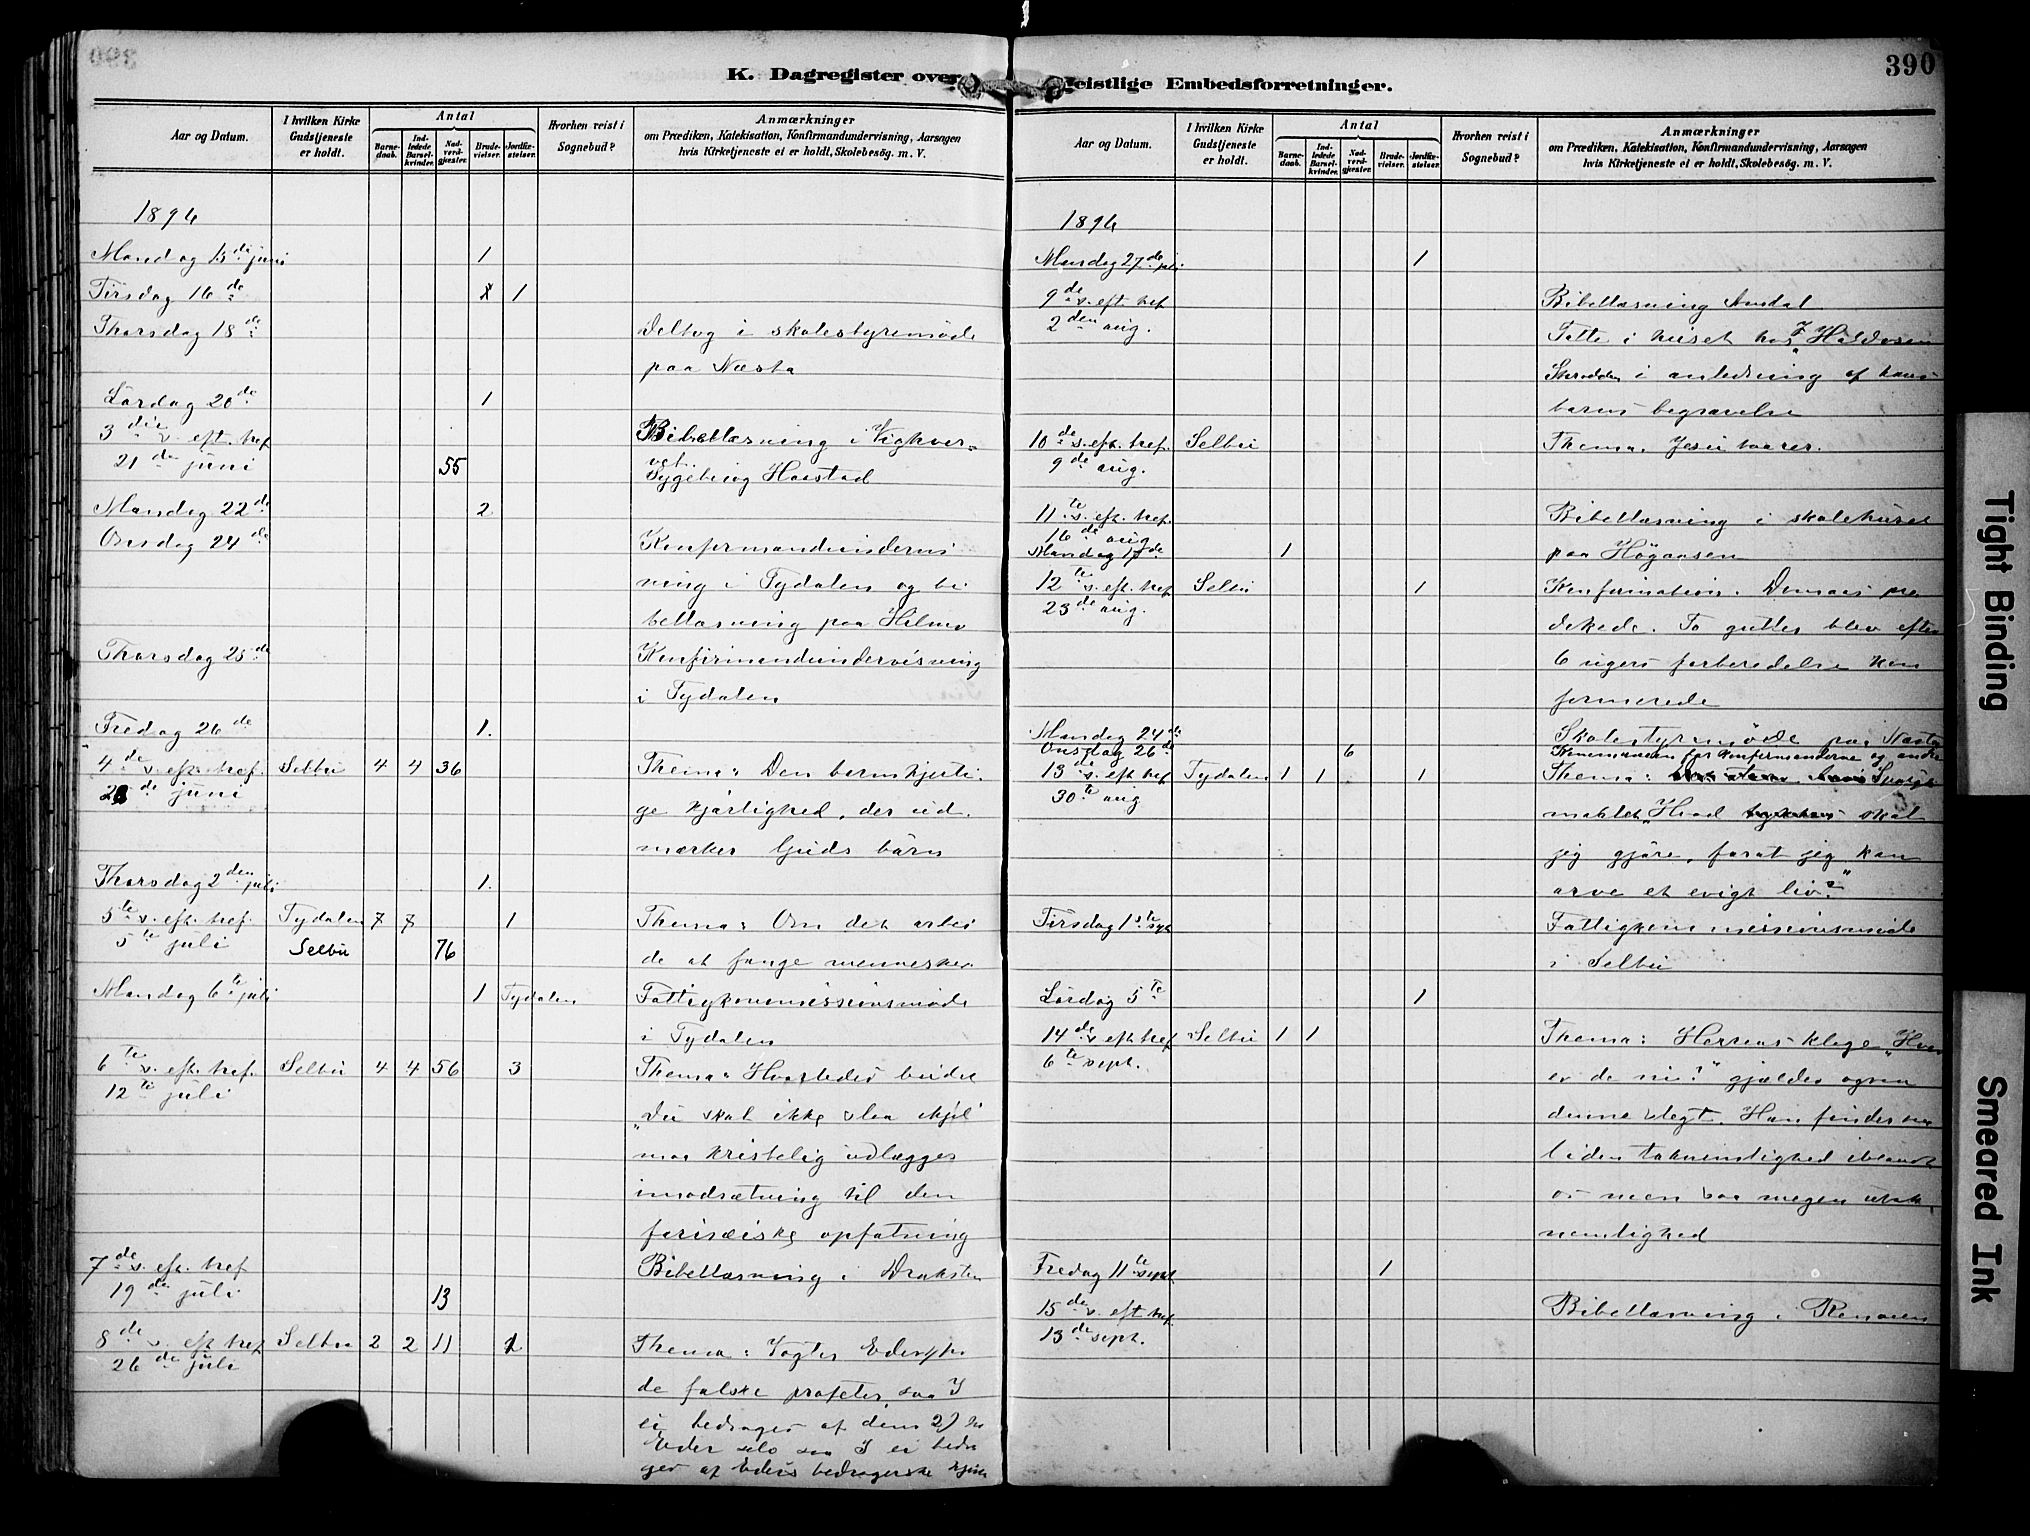 390
K. Dagregister over geistlige Embedsforretninger.
Aar og Datum.
I hvilken Kirke Gudstjeneste er holdt.
Antal
Barnedaab.
Indledede Barselkvinder.
Nadverdgjester.
Brudevielser.
Jordfæstelser.
Hvorhen reist i Sognebud?
Anmærkninger
om Prædiken, Katekisation, Konfirmandundervisning, Aarsagen
hvis Kirketjeneste ei er holdt, Skolebesög. m. V.
1896
Mandag 15de juni 1
Tirsdag 16de 1
Thorsdag 18de Deltog i skolestyremöde
paa Næsta
Lördag 20de 1
3die s. eft. tref. Bibellæsning i Vigkver-
vet.
21de juni 55 Sygebesög Haarstad
Mandag 22de 2
Onsdag 24de Konfirmandundervi
ning i Tydalen og bi
bellæsning paa Hilmo
Thorsdag 25de Konfirmandundervisning
i Tydalen
Fredag 26de 1.
4de s. eft. tref. Selbu 4 4 36 Thema: Den barmhjerti-
28de juni
ge kjærlighed, der ud-
mærker Guds börn
Thorsdag 2den juli 1.
5te s. eft. tref. Tydalen 7 7 1 Thema: Om det arbei
5te juli Selbu 76 de at fange mennesker.
Mandag 6te juli 1 Tydalen Fattigkommissionsmöde
i Tydalen
6te s. eft. tref. Selbu 4 4 56 3 Thema: Hvorledes budet
12te juli
"Du skal ikke slaa ihjel"
maa kristelig udlægges
i modsætning til den
farisæiske opfatning
7de s. eft. tref Bibellæsning i Draksten
19de juli 13
8de s. eft tref Selbu 2 2 11 Thema: Vogter Eder for
26de juli
de falske profeter, saa I
ei bedrages af dem 2) for
Eder selv saa I ei bedra
ges af Eders bedragerske hjerte
K. Dagregister over geistlige Embedsforretninger.
Aar og Datum.
I hvilken Kirke Gudstjeneste er holdt.
Antal
Barnedaab.
Indledede Barselkvinder.
Nadverdgjester.
Brudevielser.
Jordfæstelser.
Hvorhen reist i Sognebud?
Anmærkninger
om Prædiken, Katekisation, Konfirmandundervisning, Aarsagen
hvis Kirketjeneste ei er holdt, Skolebesög. m. V.
1896
Mandag 27de juli 1
9de s. eft. tref Bibellæsning
2den aug. i huset hos
i anledning af hans
barns begravelse
10de s. eft. tref. Selbu Thema. Jesu taarer.
9de aug.
11te s. eft. tref. Bibellæsning i skolehuset
16de aug.
paa Högaasen
Mandag 17de 1
12te s. eft. tref Selbu 1 Konfirmation. præ
23de aug.
dikede. To gutter blev efter
6 ugers forberedelse kon
firmerede
Mandag 24de Skolestyremöde paa Næsta
Onsdag 26de 6 for konfirmanderne og andre
13de s. eft tref Tydalen 1 1 1 Thema: Spörgs
30te aug
maalet "Hvad skal
jeg gjöre, forat jeg kan
arve et evigt liv?"
Tirsdag 1ste sept Fattigkommissionsmöde
i Selbu
Lördag 5te 1
14de s eft tref Selbu 1 1 Thema: Herrens klage "Hvor
6te sept.
er de ni?" gjælder ogsaa
denne slegt. Han finder
liden taknemlighed iblandt
os men saa megen utak-
nemlighed
Fredag 11te sept 1
15de s. eft tref. Bibellæsning i
13de sept.
Tight Binding
Smeared Ink